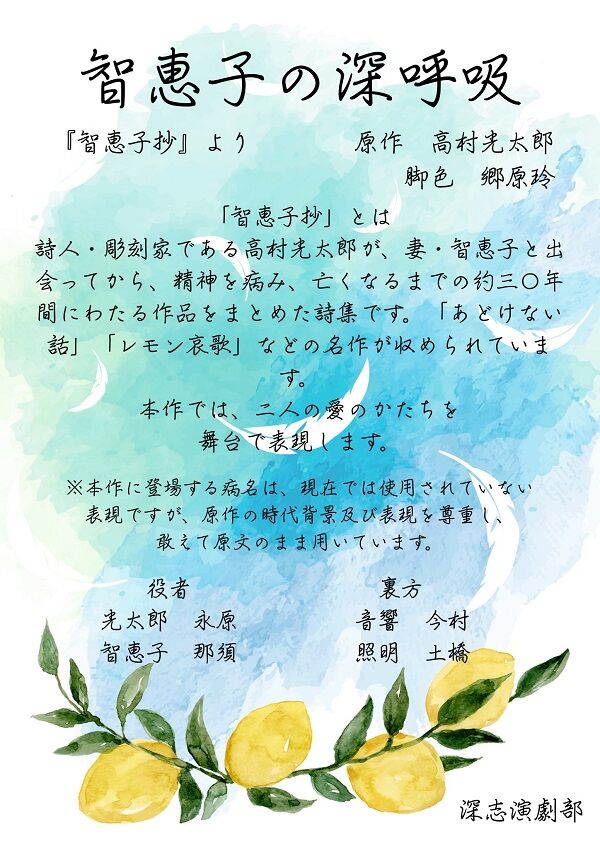 智恵子の深呼吸
『智恵子抄』より　原作　高村光太郎
脚色　郷原玲
「智恵子抄」とは
詩人・彫刻家である高村光太郎が、妻・智恵子と出
会ってから、精神を病み、亡くなるまでの約三〇年
間にわたる作品をまとめた詩集です。「あどけない
話」「レモン哀歌」などの名作が収められていま
す。
本作では、二人の愛のかたちを
舞台で表現します。
※本作に登場する病名は、現在では使用されていない
表現ですが、原作の時代背景及び表現を尊重し、
敢えて原文のまま用いています。
役者
光太郎　永原
智恵子　那須
裏方
音響　今村
照明　土橋
深志演劇部